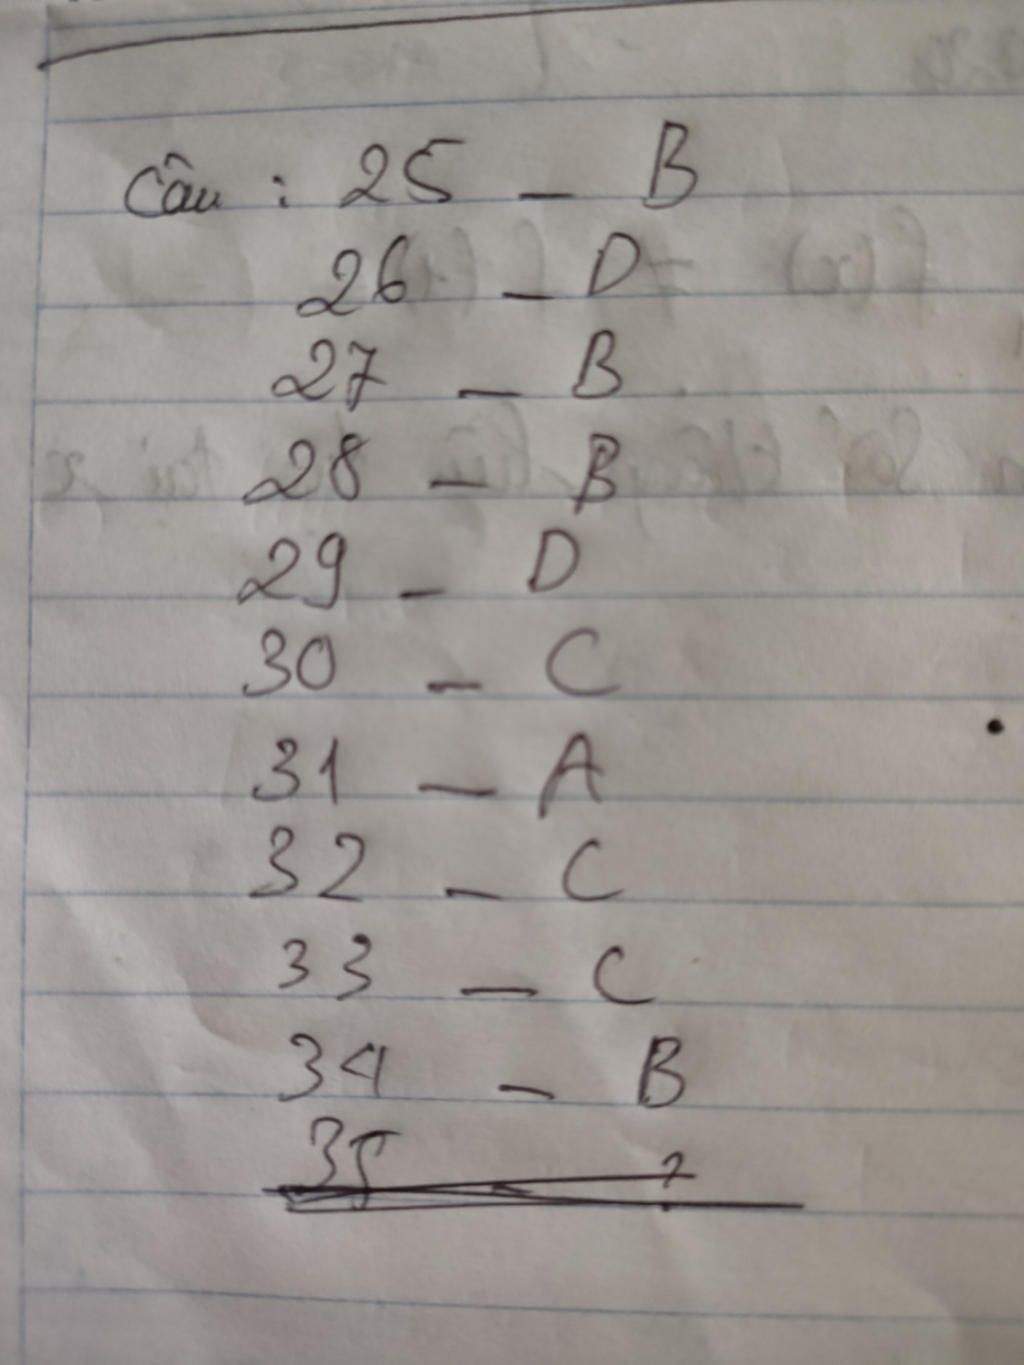 Câu : 25 - B
26 - D
27 - B
28 - B
29 - D
30 - C
31 - A
32 - C
33 - C
34 - B
35 ?